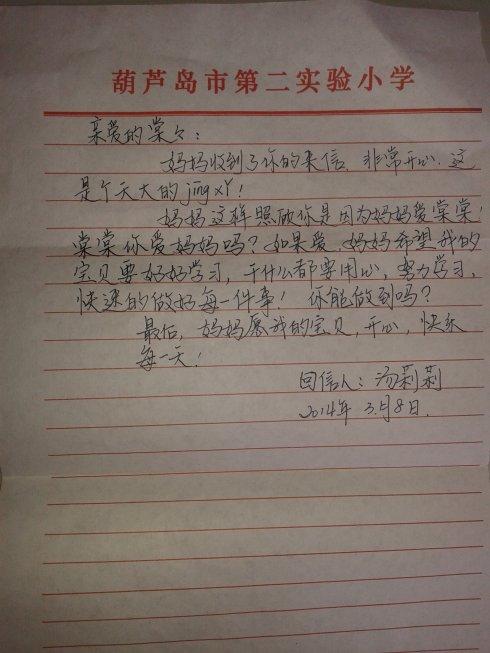 葫芦岛市第二实验小学
亲爱的棠々：
妈妈收到了你的来信，非常开心，这
是个天大的jīng xǐ！
妈妈这样照顾你是因为妈妈爱棠棠！
棠棠你爱妈妈吗？如果爱，妈妈希望我的
宝贝要好好学习，干什么都要用心，努力学习，
快速的做好每一件事！你能做到吗？
最后，妈妈愿我的宝贝，开心，快乐
每一天！
回信人：汤莉莉
2014年3月8日.